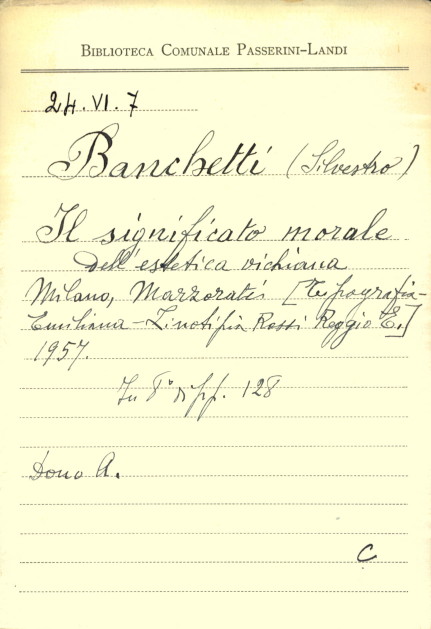 BIBLIOTECA COMUNALE PASSERINI-LANDI
24.VI.7
Banchetti (Silvestro)
Il significato morale
dell'estetica vichiana
Milano, Marzorati [Tipografia-
Emiliana-Linotipia Rossi Reggio E.]
1957.
In 8° di pp. 128
Dono A.
C